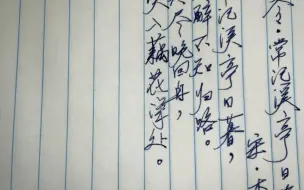 令·常记溪亭日
宋·
记溪亭日暮，
醉不知归路。
尽晚回舟，
入藕花深处。